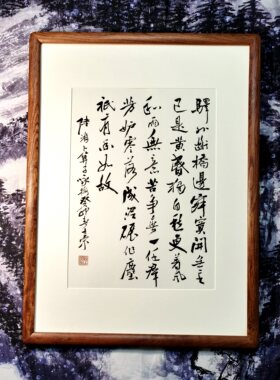 驿外断桥邊寂寞開無主
已是黄昏獨自愁更着风
和雨無意苦争春一任群
芳妒零落成泥碾作塵
祇有香如故
陸游卜算子咏梅癸卯年